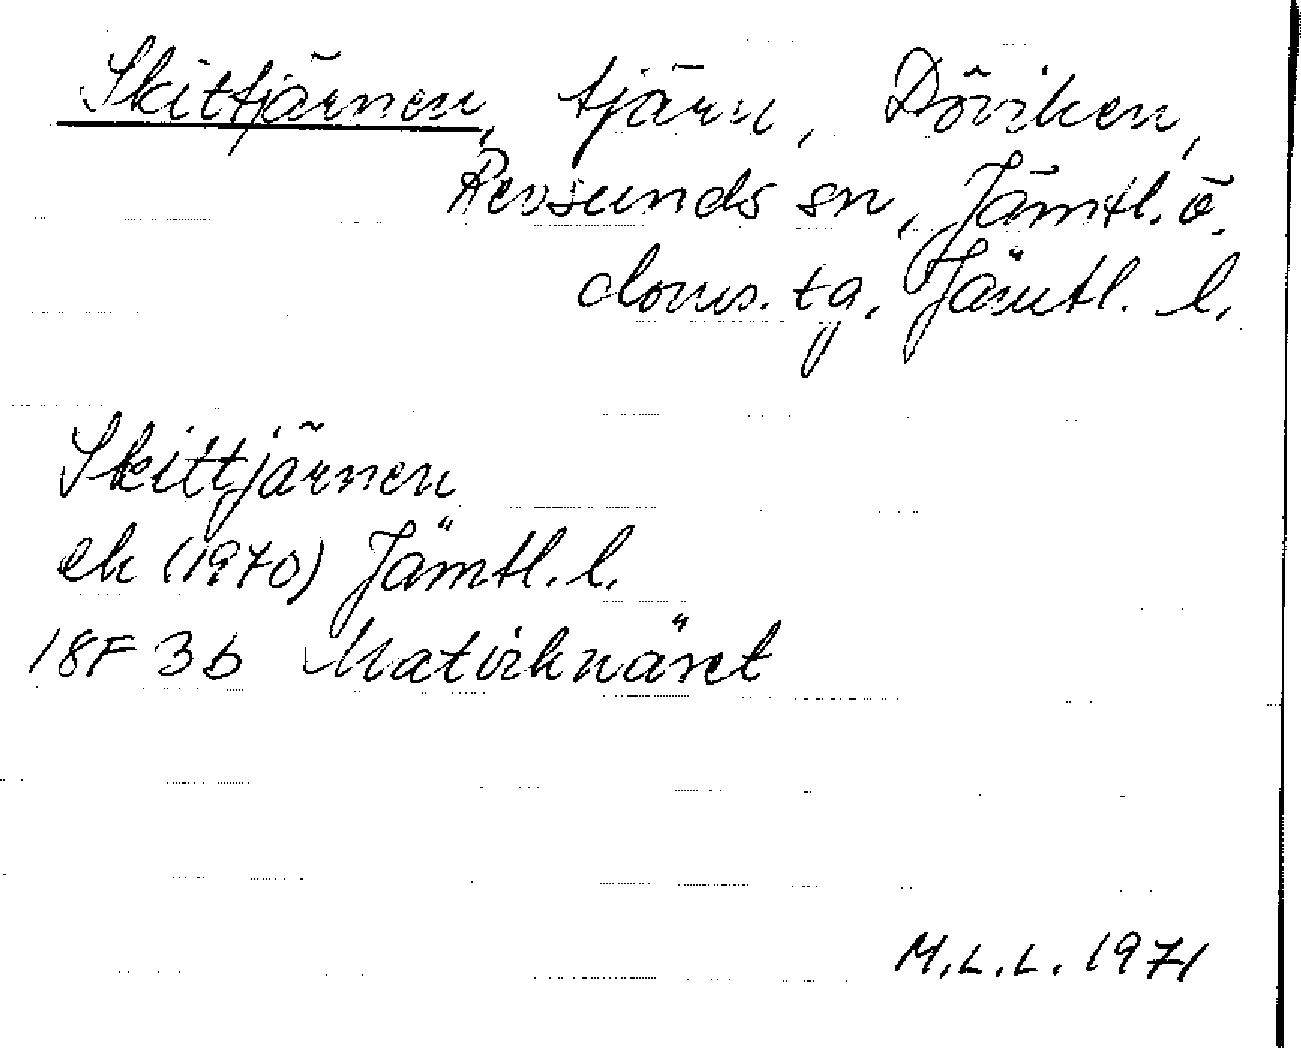 Skittjärnen, tjärn, Döviken,
Revsunds sn, Jämtl. ö.
doms. tg, Jämtl. l.
Skittjärnen
ek (1970) Jämtl. l.
18F 3b
M.L.L. 1971